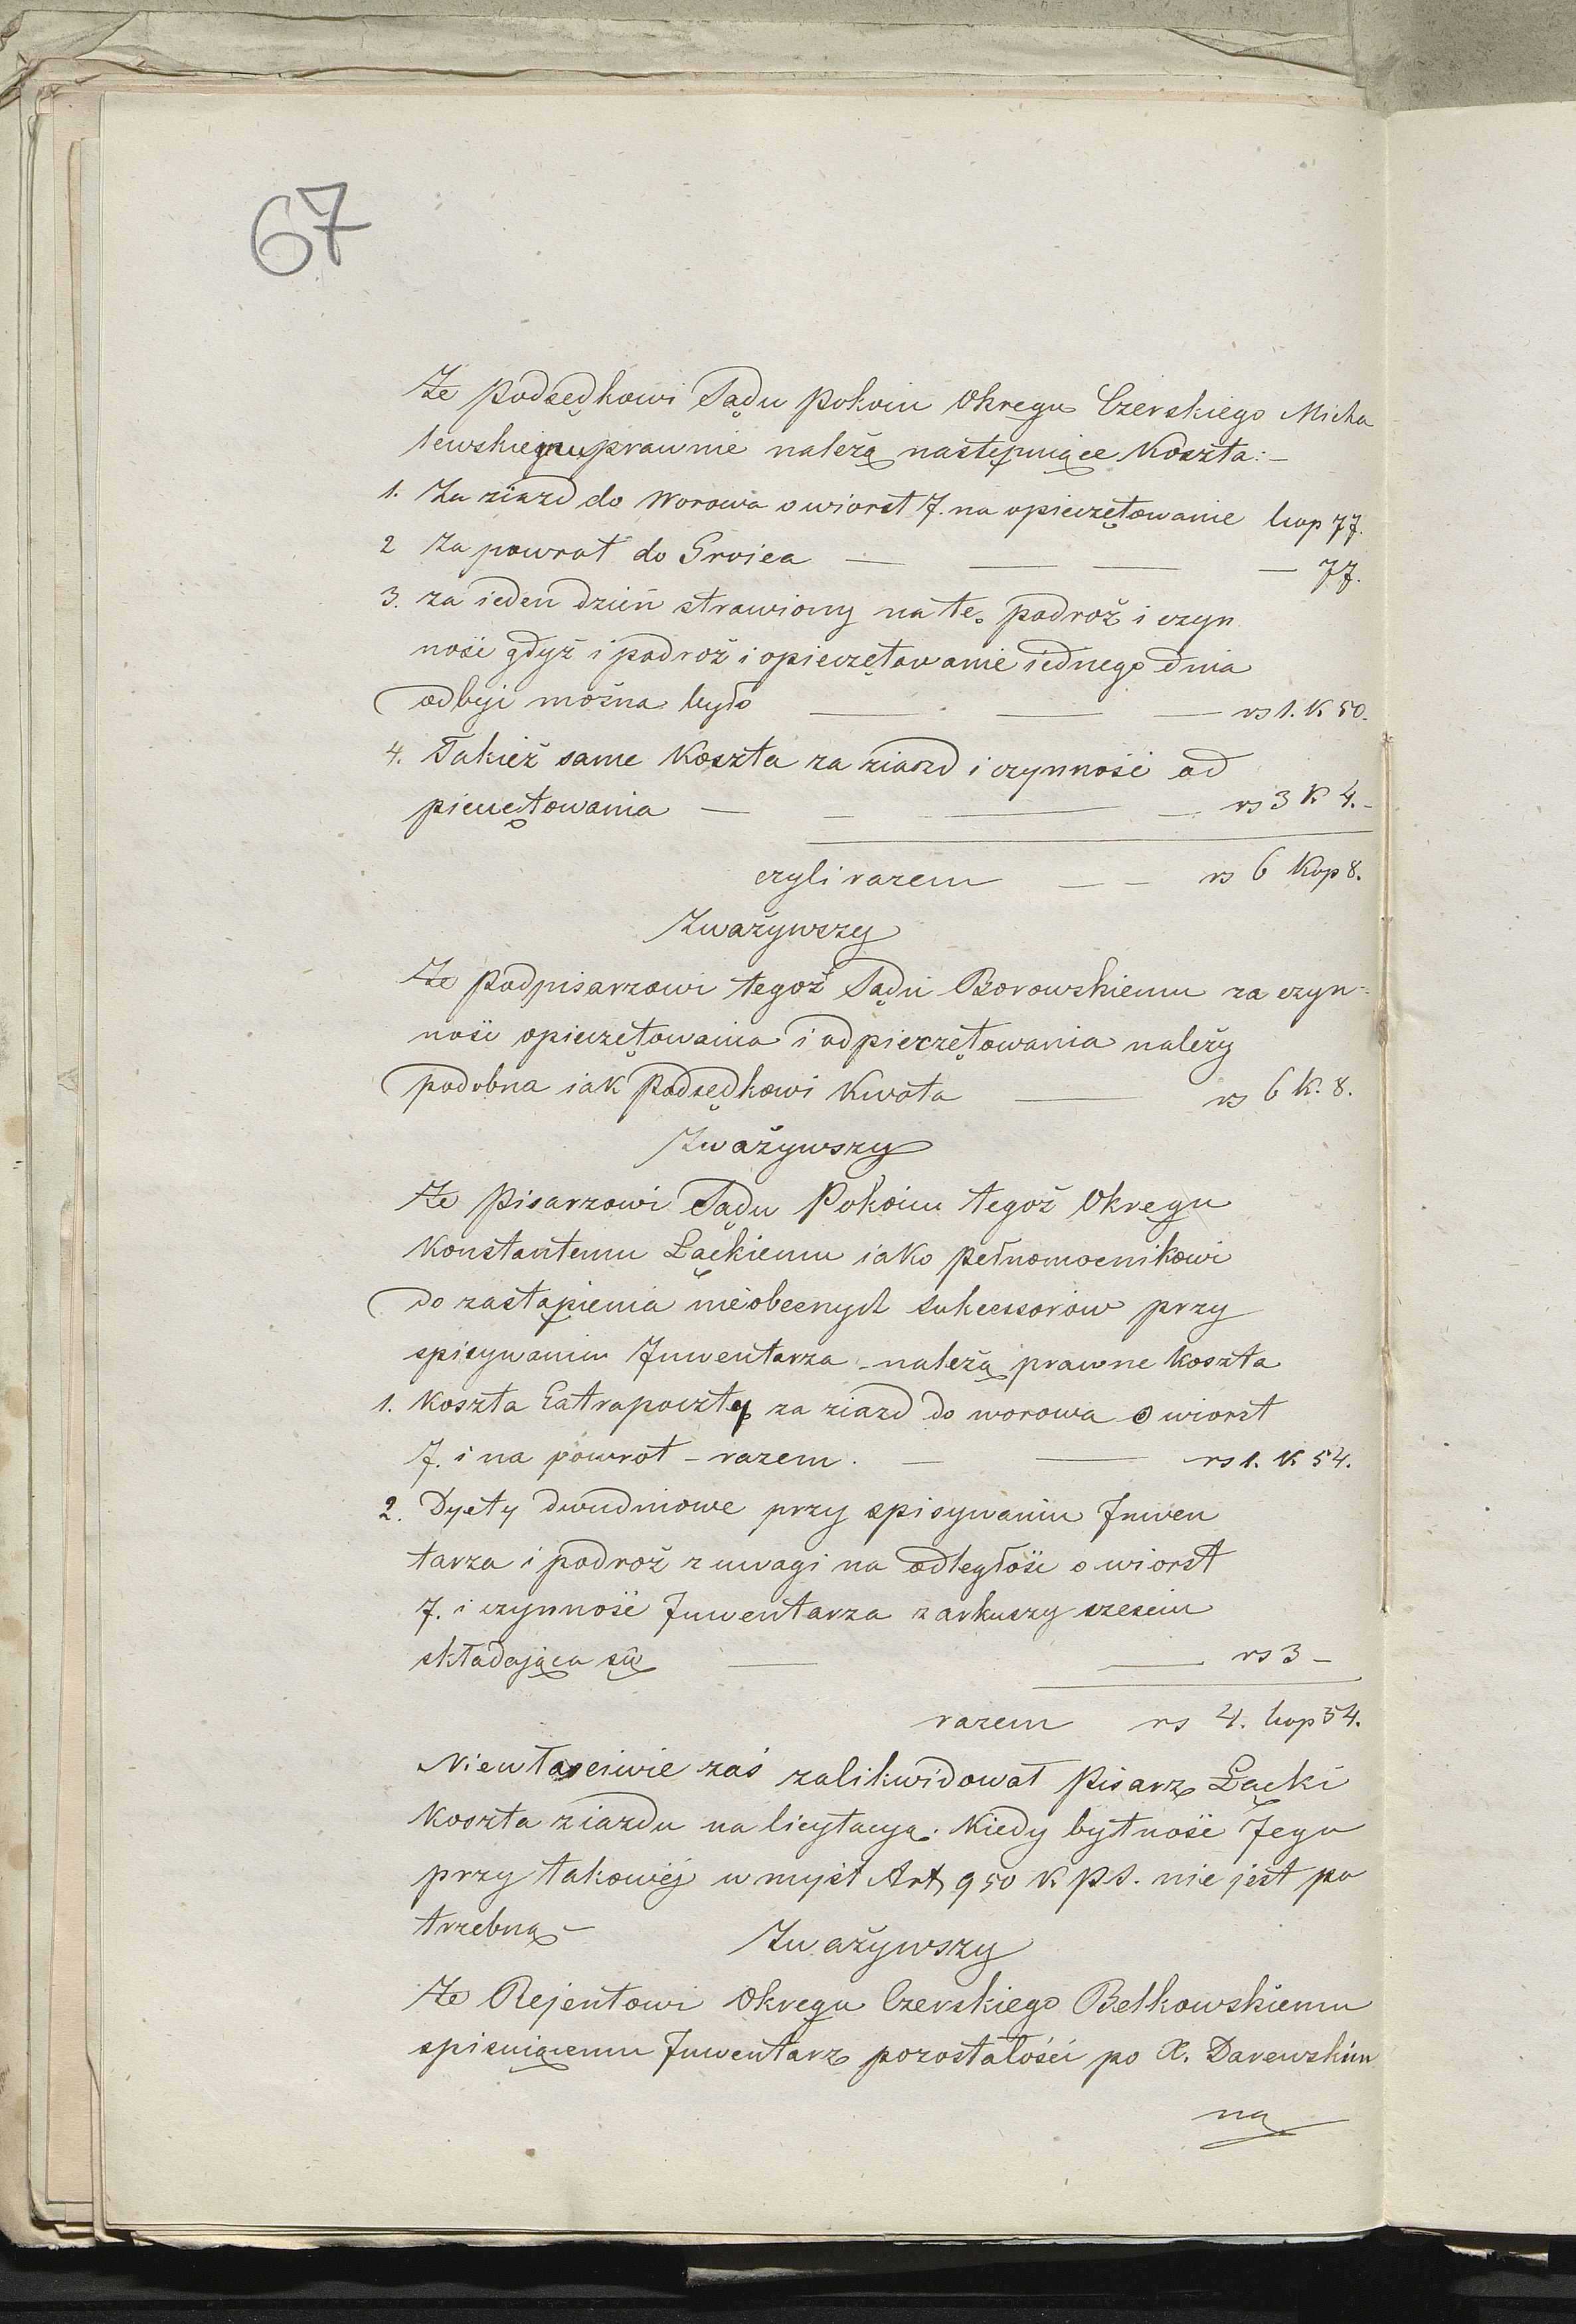 67
Że Podsędkowi Sądu Pokoiu Okręgu Czerskiego Micha
lewskiemu prawnie należą następuiące Koszta:-
1. Za ziazd do Worowa o wiorst 7. na opieczętowanie kop 77.
2 Za powrot do Groica — — — — 77.
3. za ieden dzień strawiony na tę podroż i czyn
ność gdyż i podroż i opieczętowanie iednego dnia
odbyć można było — — — rs 1. K 50.
4. Takież same Koszta za ziazd i czynność od
pieczętowania — — — — rs 3 K 4.-
czyli razem — — rs 6 Kop 8.
Zważywszy
Że Podpisarzowi tegoż Sądu Borowskiemu za czyn=
ność opieczętowania i odpieczętowania należy
podobna iak Podsędkowi Kwota — rs 6 K. 8.
Zważywszy
Że Pisarzowi Sądu Pokoiu tegoż Okręgu
Konstantemu Łąckiemu iako pełnomocnikowi
do zastąpienia nieobecnych sukcessorow przy
spisywaniu Inwentarza - należą prawne koszta
1. Koszta Extrapoczty za ziazd do worowa o wiorst
7. i na powrot - razem. — — rs 1. K 54.
2. Dyety dwudniowe przy spisywaniu Inwen
tarza i podroż z uwagi na odległość o wiorst
7. i czynność Inwentarza z arkuszy sześciu
składająca się — — rs 3 -
razem rs 4. kop 54.
Niewłaściwie zaś zalikwidował Pisarz Łącki
Koszta ziazdu na licytacyą. Kiedy bytność Jego
przy takowéj w myśl Art 950 K P S. nie jest po
trzebną -
Zważywszy
Że Rejentowi Okręgu Czerskiego Bełkowskiemu
spisuiącemu Inwentarz pozostałości po X. Darewskim
na